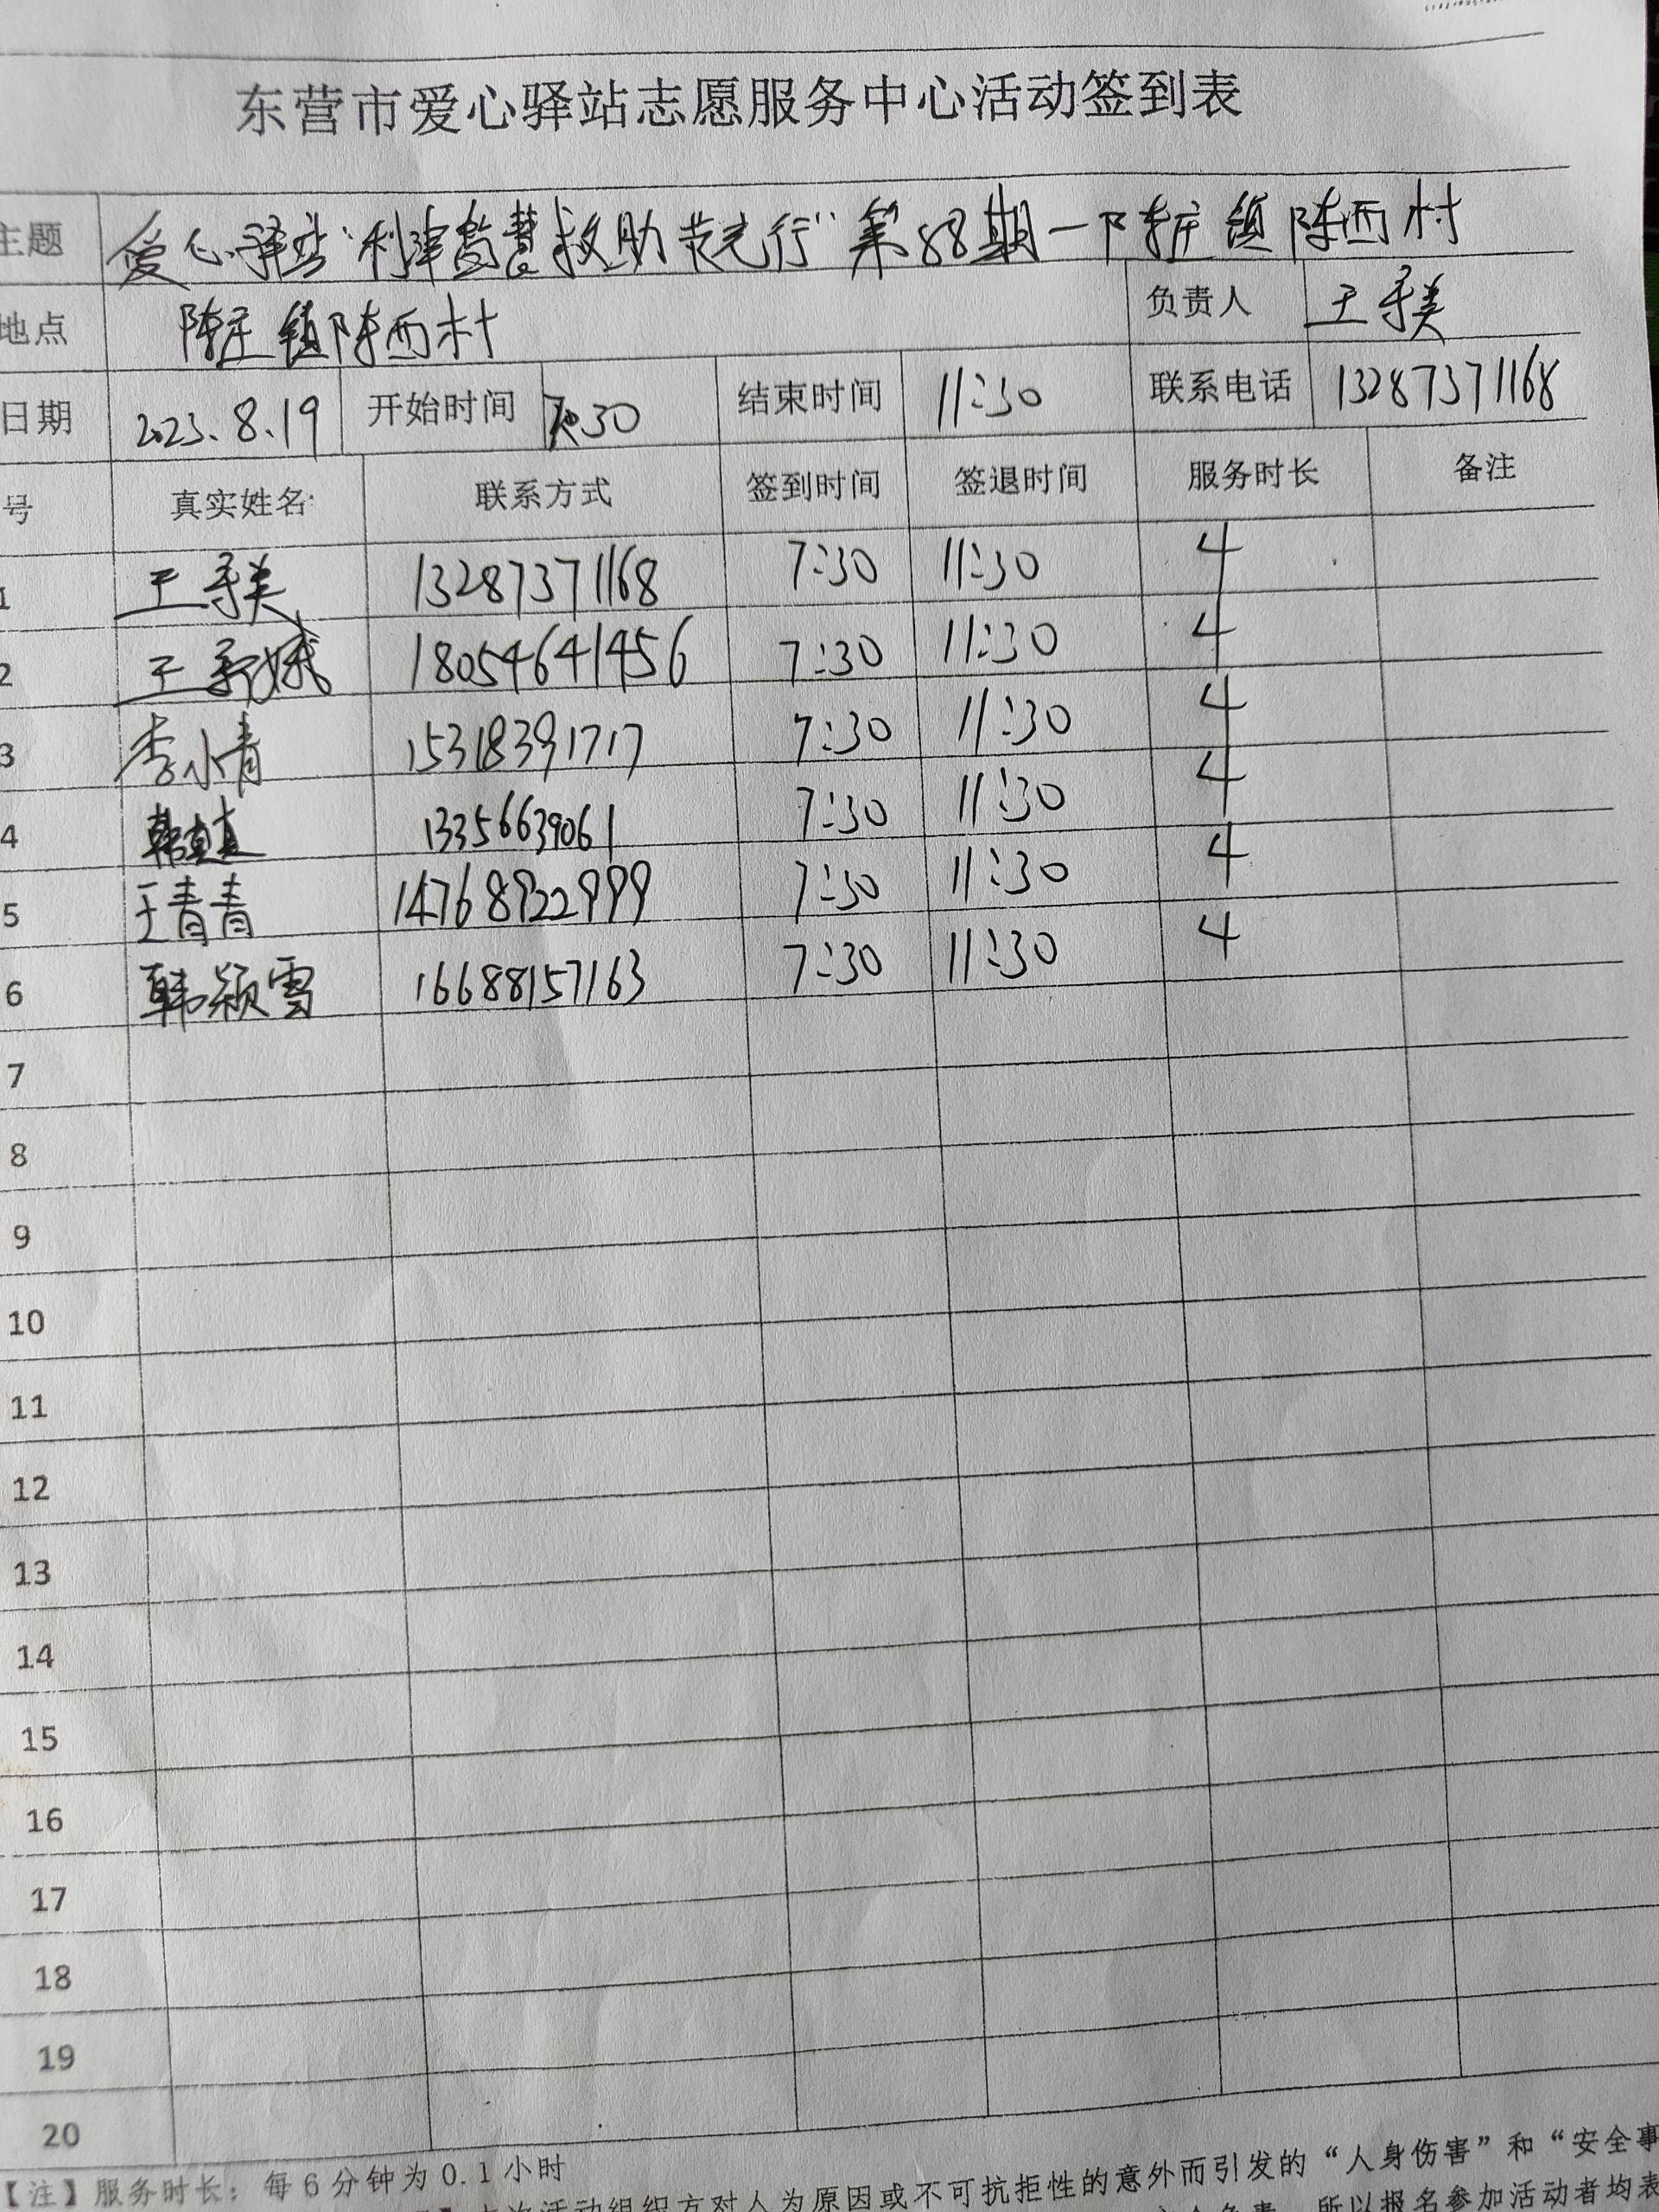 东营市爱心驿站志愿服务中心活动签到表
主题 爱心驿站“利津智慧救助 先行”第88期一陈庄镇陈西村
地点 陈庄镇陈西村 负责人 王子美
日期 2023.8.19 开始时间 7:30 结束时间 11:30 联系电话 13287371168
号 真实姓名 联系方式 签到时间 签退时间 服务时长 备注
1 王子美 13287371168 7:30 11:30 4
2 王 娥 18054641456 7:30 11:30 4
3 李小青 15318391717 7:30 11:30 4
4 韩 13356639061 7:30 11:30 4
5 王青青 14768922999 7:30 11:30 4
6 韩颖雪 16688157163 7:30 11:30 4
7
8
9
10
11
12
13
14
15
16
17
18
19
20
【注】服务时长：每6分钟为0.1小时
次活动组织方对人为原因或不可抗拒性的意外而引发的“人身伤害”和“安全事
所以报名参加活动者均表